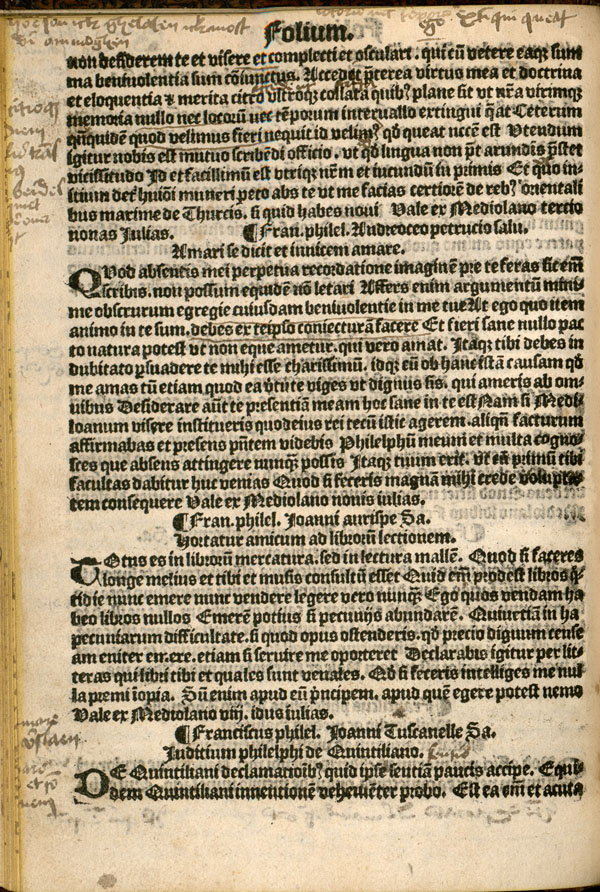 Folium.
non desiderem te et visere et complecti et osculari. qui cū vetere eaqꝫ sum
ma beniuolentia sum cōiunctus. Accedet p̄terea virtus mea et doctrina
et eloquentia ⁊ merita citro vltroqꝫ collata quibꝰ plane fit vt nr̄a vtrimqꝫ
memoria nullo nec locorū nec tēporum interuallo extingui q̄at Ceterum
qn̄quidē quod velimus fieri nequit id velimꝰ qd̄ queat necē est Vtendum
igitur nobis est mutuo scribēdi officio. vt qd̄ lingua non pt̄ arundīs p̄stet
vicissitudo Id et facillimū est vtriqꝫ nr̄m et iucundū in primis Et quo in-
itium det̄ huiōi muneri peto abs te vt me facias certiorē de rebꝰ orientali
bus maxime de Thurcis. si quid habes noui Vale ex Mediolano tertio
nonas Iulias. ¶ Fran. philel. Andreoceo petrucio salu.
Amari se dicit et inuicem amare.
QVod absentis mei perpetua recordatione imaginē pre te feras sic em̄
scribis. non possum equidē nō letari Affers enim argumentū mini-
me obscurum egregie cuiusdam beniuolentie in me tue At ego quo item
animo in te sum. debes ex teipso coniecturā facere Et fieri sane nullo pac
to natura potest vt non eque ametur. qui vero amat. Itaqꝫ tibi debes in
dubitato psuadere te mihi esse charissimū. idqꝫ cū ob hanc istā causam qd̄
me amas tū etiam quod ea v̄tute viges vt dignus sis. qui ameris ab om-
nibus Desiderare aūt te presentiā meam hoc sane in te est Nam si Medi
loanum visere institueris quoduis rei tecū istic agerem. aliqn̄ facturum
affirmabas et presens pn̄tem videbis Philelphū meum et multa cogno
sces que absens attingere nunqꝫ possis Itaqꝫ tuum erit. vt cū primū tibi
facultas dabitur huc venias Quod si feceris magnā mihi crede volupta
tem consequere Vale ex Mediolano nonis iulias.
¶ Fran. philel. Ioanni aurispe Sa.
Hortatur amicum ad librorū lectionem.
TOtus es in librorū mercatura. sed in lectura mallē. Quod si faceres
longe melius et tibi et musis consultū esset Quid em̄ prodest libros q̄
tidie nunc emere nunc vendere legere vero nunqꝫ Ego quos vendam ha
beo libros nullos Emerē potius si pecunijs abundarē. Quin etiā in ha
pecuniarum difficultate. si quod opus ostenderis. qd̄ precio dignum cense
am eniter emere. etiam si seruire me oporteret Declarabis igitur per lit-
teras qui libri tibi et quales sunt venales. Qd̄ si feceris intelliges me nul
la premi īopia. Sū enim apud eū p̄ncipem. apud quē egere potest nemo
Vale ex Mediolano viij. idus iulias.
¶ Franciscus philel. Ioanni Tuscanelle Sa.
Iuditium philelphi de Quintiliano.
DE Quintiliani declamatioībꝰ quid ipse sentiā paucis accipe. Equi
dem Quintiliani inuentionē vehemēter probo. Est ea em̄ et acuta